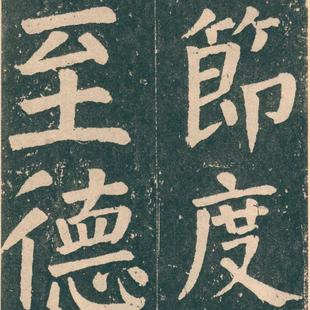 節度
至德